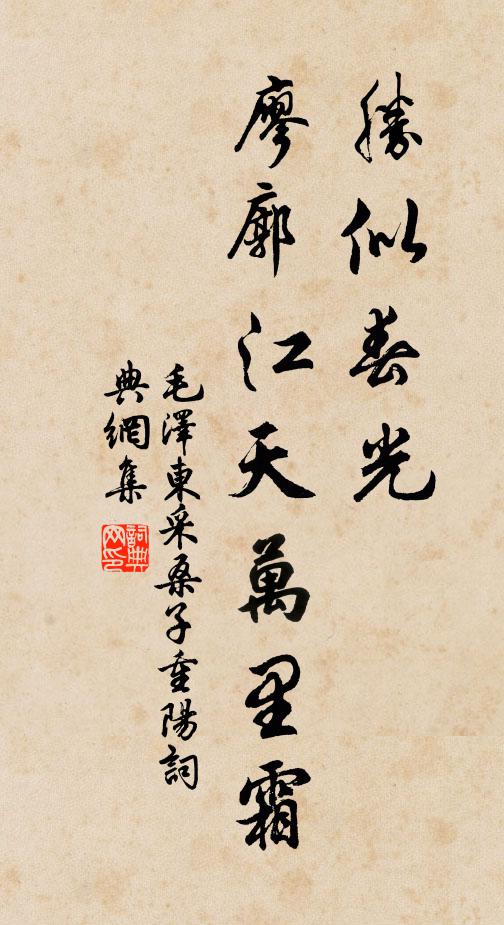 勝似春光
廖廓江天萬里霜
毛澤東采桑子重陽詞
典網集
詞典
网印